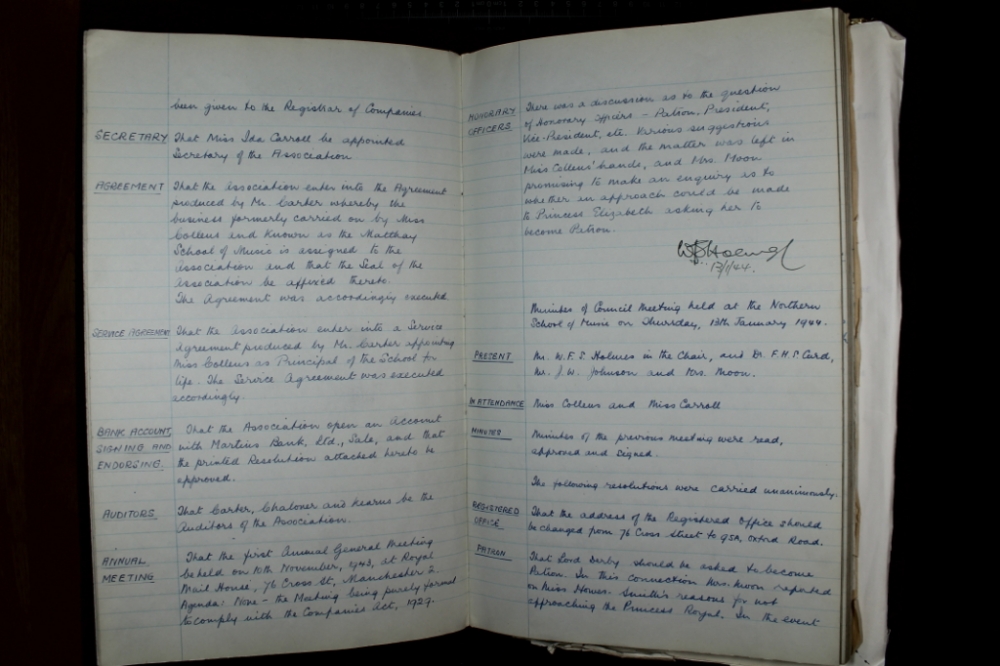 been given to the Registrar of Companies
SECRETARY That Miss Ida Carroll be appointed
Secretary of the Association
AGREEMENT That the association enter into the Agreement
produced by Mr. Carter whereby the
business formerly carried on by Miss
Collens and known as the Matthay
School of Music is assigned to the
association and that the Seal of the
association be affixed thereto.
The Agreement was accordingly executed
SERVICE AGREEMENT That the association enter into a Service
agreement produced by Mr. Carter appointing
Miss Collens as Principal of the School for
life. The Service Agreement was executed
accordingly.
BANK ACCOUNT, That the Association open an account
SIGNING AND with Martins Bank, Ltd., Sale, and that
ENDORSING. the printed Resolution attached hereto be
approved.
AUDITORS That Carter, Chaloner and Kearns be the
Auditors of the Association.
ANNUAL That the first Annual General Meeting
MEETING be held on 10th November, 1943, at Royal
Mail House, 76 Cross St, Manchester 2.
Agenda: None - the Meeting being purely formal
to comply with the Companies Act, 1929.
HONORARY There was a discussion as to the question
OFFICERS of Honorary Officers - Patron, President,
Vice-President, etc. Various suggestions
were made, and the matter was left in
Miss Collens' hands, and Mrs. Moon
promising to make an enquiry as to
whether an approach could be made
to Princess Elizabeth asking her to
become Patron.
13/1/44.
Minutes of Council Meeting held at the Northern
School of Music on Thursday, 13th January 1944.
PRESENT Mr. W.F.S. Holmes in the Chair, and Dr. F.H.S. Card,
Mr. J.W. Johnson and Mrs. Moon.
IN ATTENDANCE Miss Collens and Miss Carroll
MINUTES Minutes of the previous meeting were read,
approved and signed.
The following resolutions were carried unanimously.
REGISTERED That the address of the Registered Office should
OFFICE be changed from 76 Cross Street to 95A, Oxford Road.
PATRON That Lord Derby should be asked to become
Patron. In this connection Mrs. Moon reported
on Miss Smith's reasons for not
approaching the Princess Royal. In the event